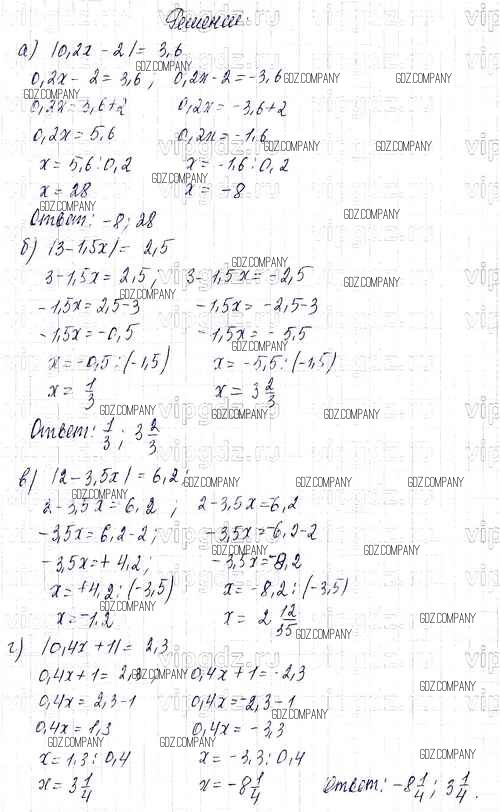 Решение:
а) |0,2x - 2| = 3,6
0,2x - 2 = 3,6 ; 0,2x - 2 = -3,6
0,2x = 3,6+2 0,2x = -3,6+2
0,2x = 5,6 0,2x = -1,6
x = 5,6 : 0,2 x = -1,6 : 0,2
x = 28 x = -8
Ответ: -8; 28
б) |3 - 1,5x| = 2,5
3 - 1,5x = 2,5 ; 3 - 1,5x = -2,5
-1,5x = 2,5-3 -1,5x = -2,5-3
-1,5x = -0,5 -1,5x = -5,5
x = -0,5 : (-1,5) x = -5,5 : (-1,5)
x = 1/3 x = 3 2/3
Ответ: 1/3 ; 3 2/3
в) |2 - 3,5x| = 6,2 ;
2 - 3,5x = 6,2 ; 2 - 3,5x = -6,2
-3,5x = 6,2-2 ; -3,5x = -6,2-2
-3,5x = +4,2 ; -3,5x = -8,2
x = +4,2 : (-3,5) x = -8,2 : (-3,5)
x = -1,2 x = 2 12/35
г) |0,4x + 1| = 2,3
0,4x + 1 = 2,3 ; 0,4x + 1 = -2,3
0,4x = 2,3-1 0,4x = -2,3-1
0,4x = 1,3 0,4x = -3,3
x = 1,3 : 0,4 x = -3,3 : 0,4
x = 3 1/4 x = -8 1/4 Ответ: -8 1/4 ; 3 1/4 .
vipgdz.ru
GDZ.COMPANY